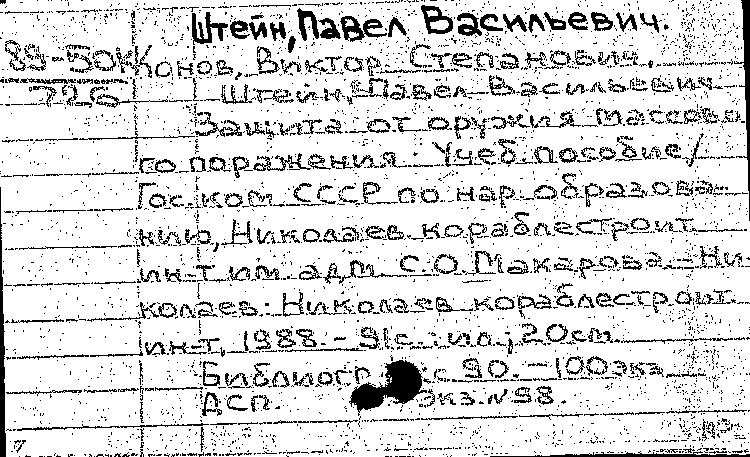 Штейн, Павел Васильевич.
89-50К
726
Конов, Виктор Степанович,
Штейн, Павел Васильевич
Защита от оружия массово
го поражения: Учеб. пособие/
Гос. ком СССР по нар. образова-
нию, Николаев. кораблестроит.
ин-т им. адм. С.О. Макарова.-Ни-
колаев: Николаев кораблестроит.
ин-т, 1988.-91с.:ил.; 20см
Библиогр с 90.-100экз
ДСП. Экз.№98.